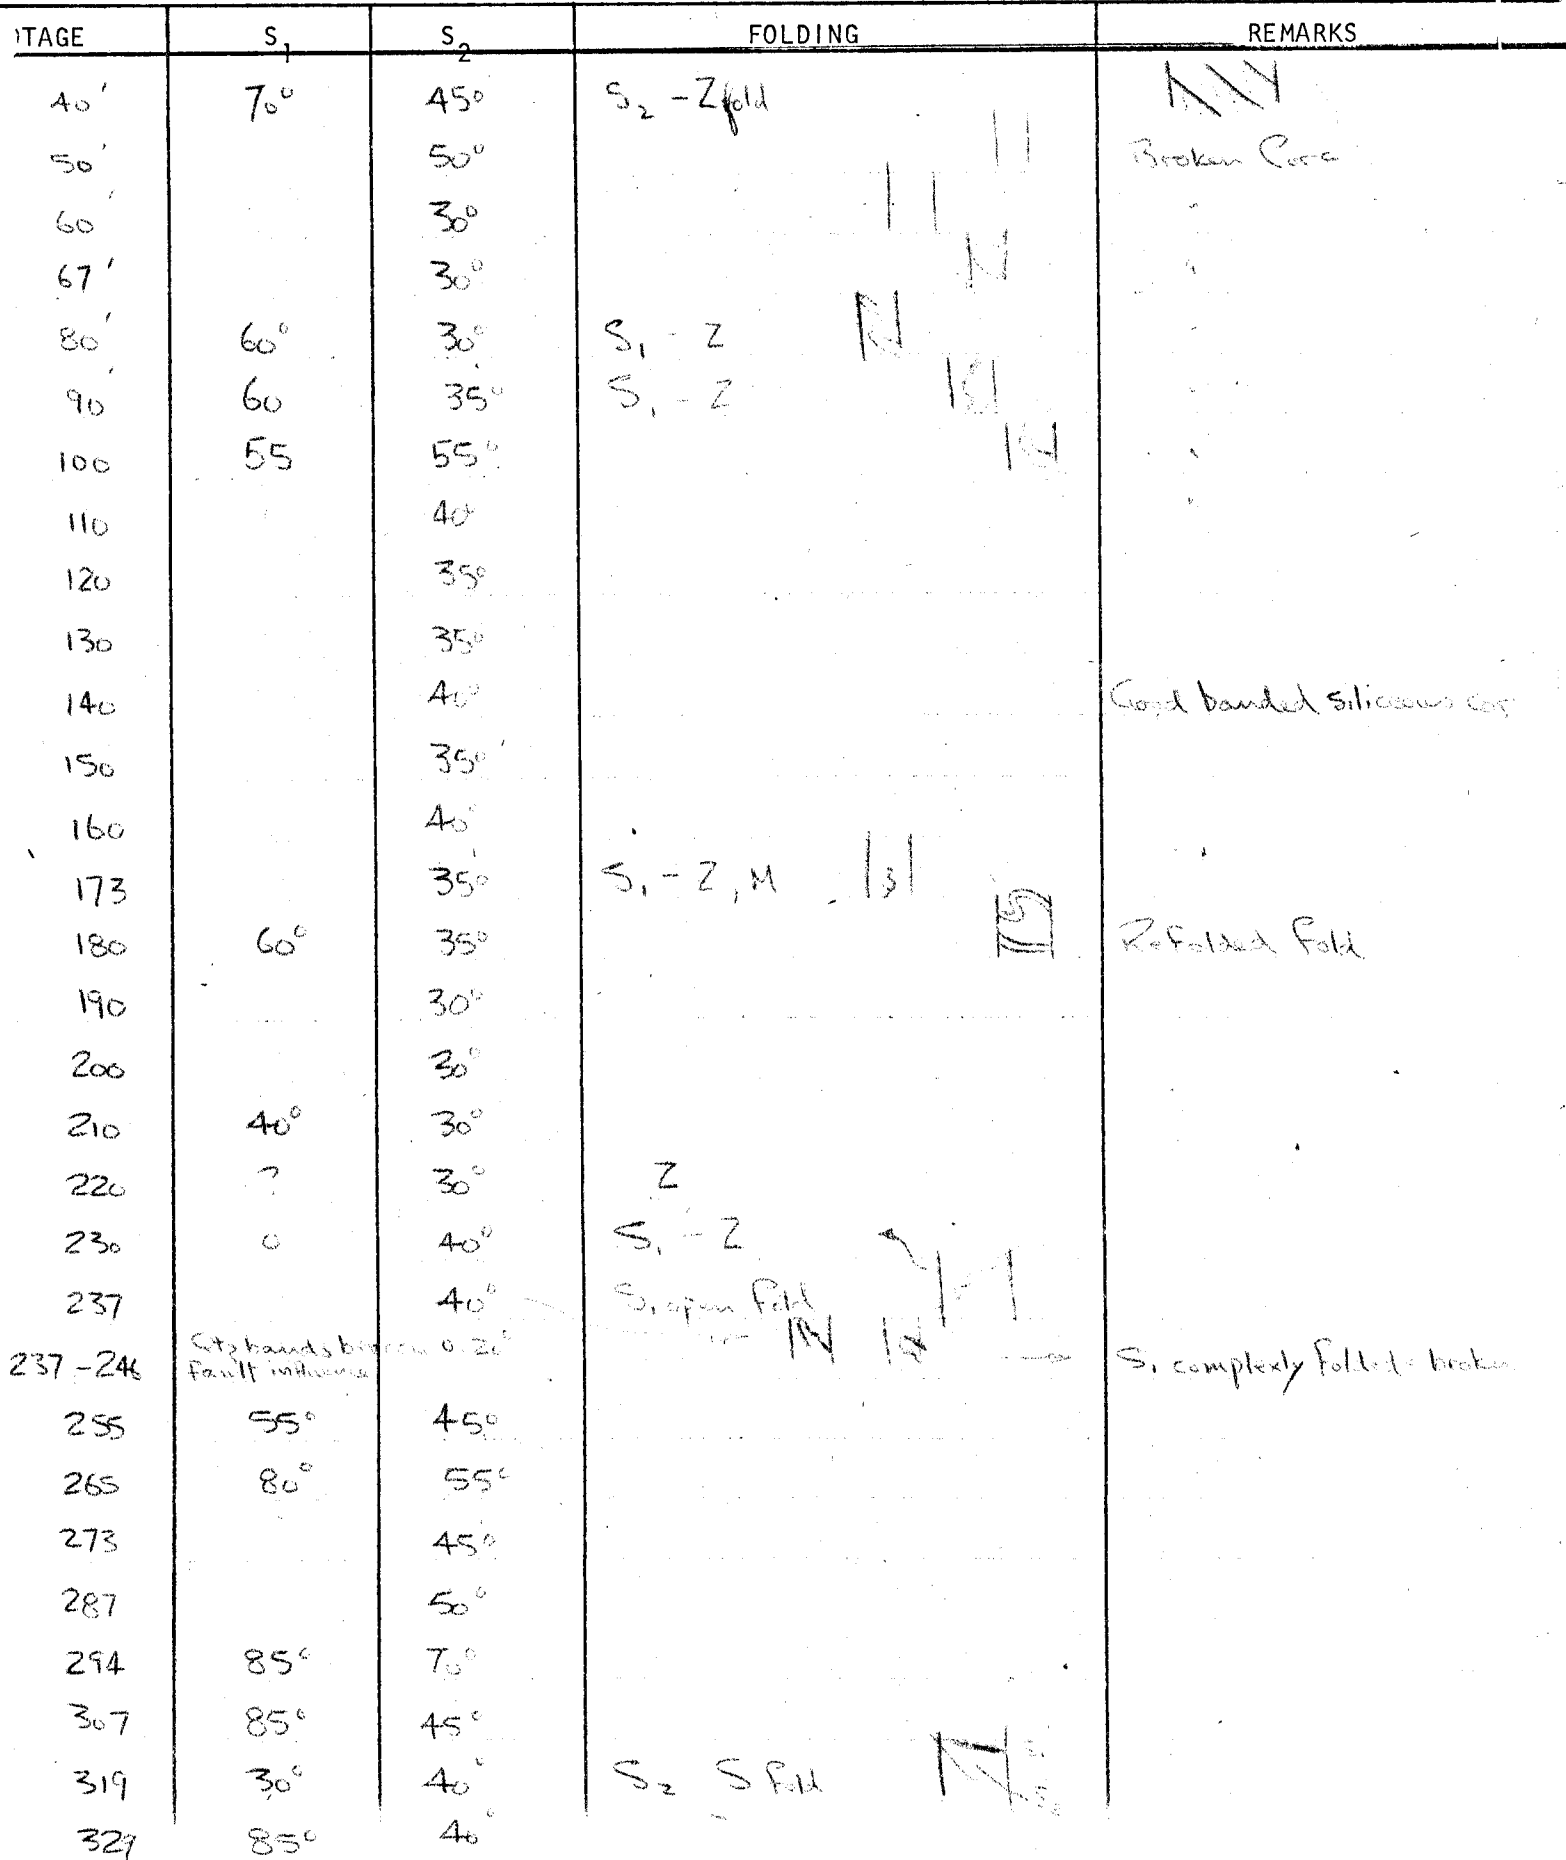 TAGE S1 S2 FOLDING REMARKS
40' 70° 45° S2 - Z fold
50' 50° Broken Core
60' 30° "
67' 30° "
80' 60° 30° S1 - Z "
90' 60 35° S1 - Z "
100 55 55° "
110 40° "
120 35°
130 35°
140 40° Good banded siliceous
150 35°
160 40°
173 35° S1 - Z, M
180 60° 35° Refolded Fold
190 30°
200 30°
210 40° 30°
220 ? 30° Z
230 0 40° S1 - Z
237 40° S1 open fold
237-246 Qtz bands 0-20° S1 complexly folded
Fault
255 55° 45°
265 80° 55°
273 45°
287 50°
294 85° 70°
307 85° 45°
319 30° 40° S2 S fold S1
S2
329 85° 40°